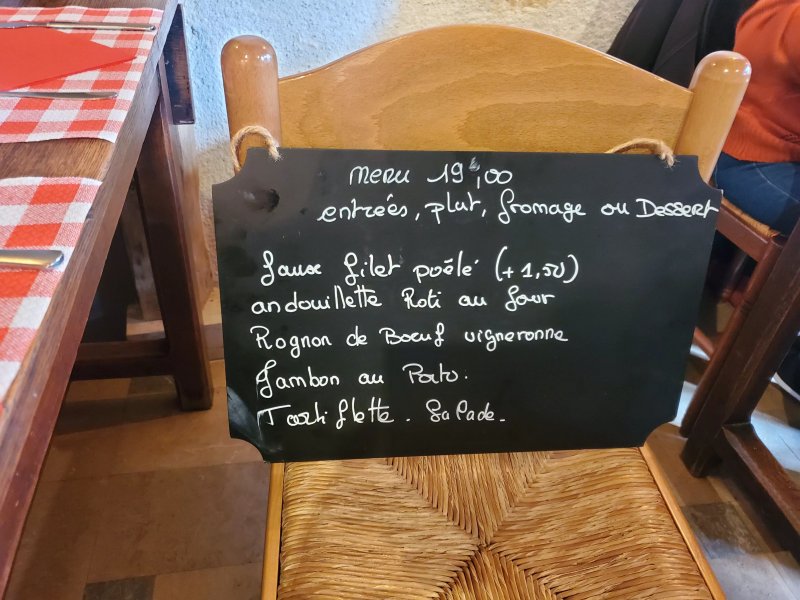 menu 19€,00
entrées, plat, fromage ou Dessert
faux filet poêlé (+1,50)
andouillette Roti au four
Rognon de Boeuf vigneronne
Jambon au Porto.
Tartiflette . Salade.